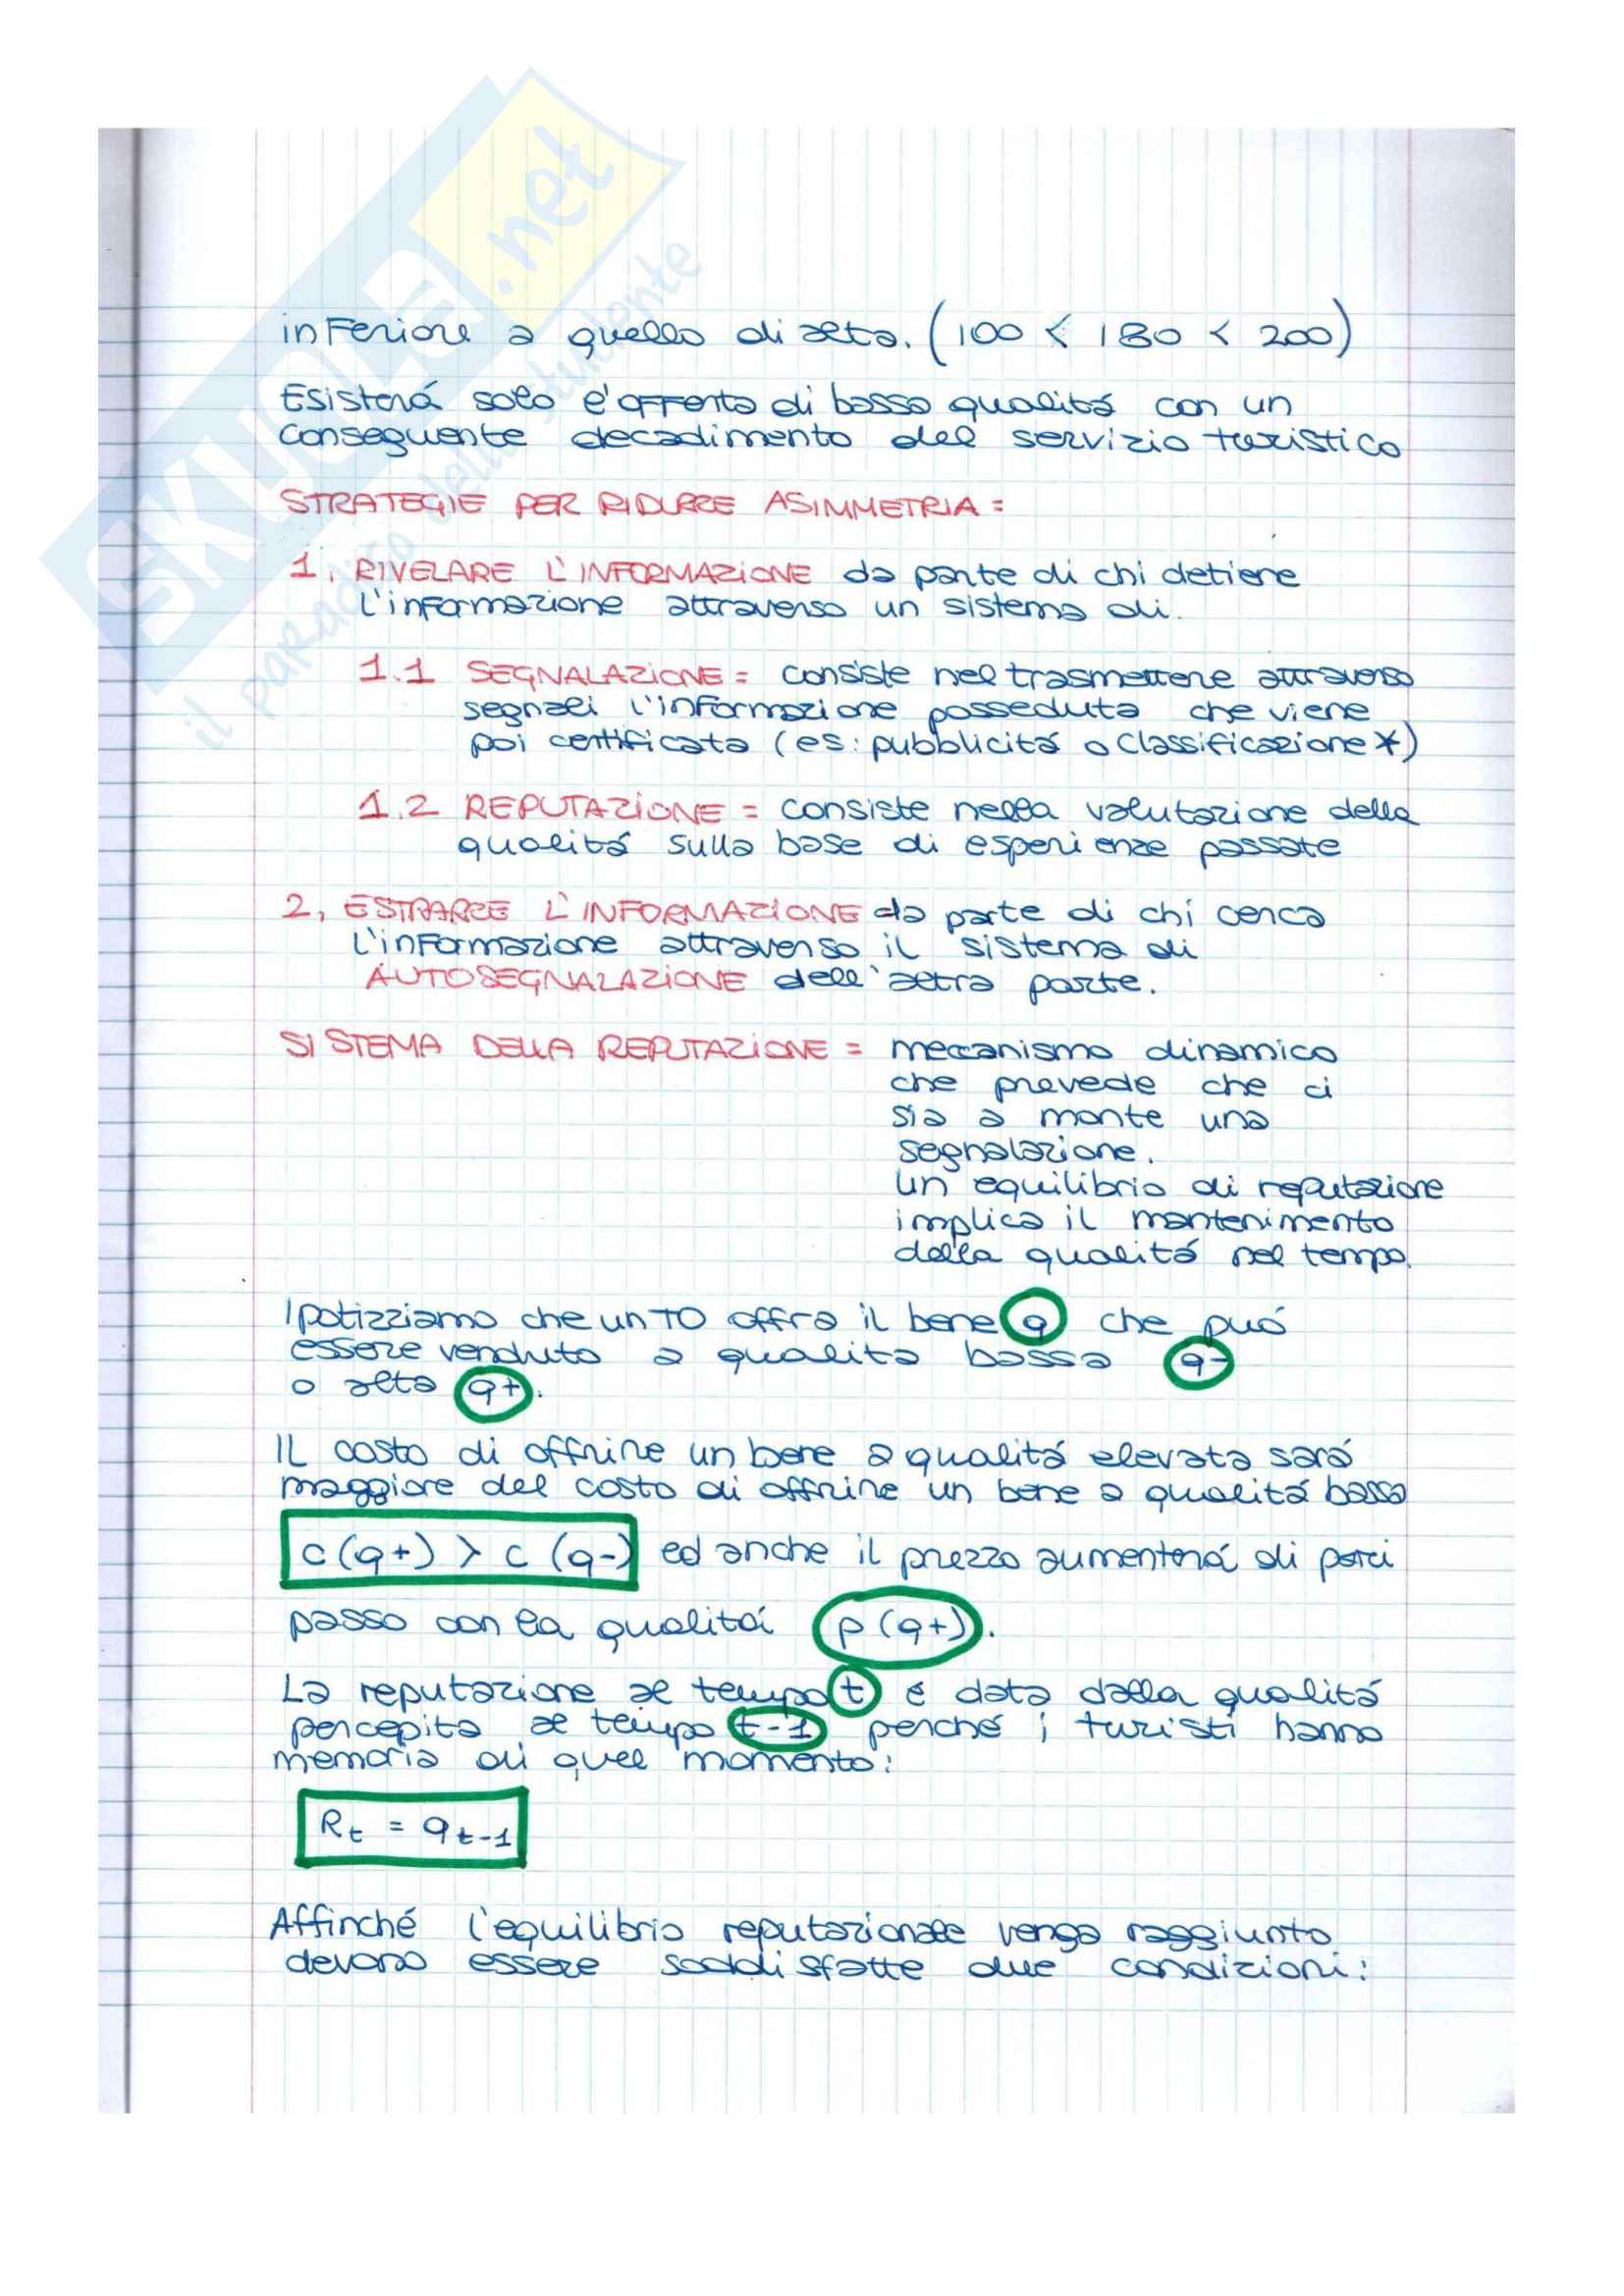 SKUOLA.net
il paradiso dello studente
inferiore a quello di alta. (100 < 180 < 200)
Esisterá solo l'offerta di bassa qualitá con un
conseguente decadimento del servizio turistico
STRATEGIE PER RIDURRE ASIMMETRIA =
1, RIVELARE L'INFORMAZIONE da parte di chi detiene
l'informazione attraverso un sistema di.
1.1 SEGNALAZIONE = consiste nel trasmettere attraverso
segnali l'informazione posseduta che viene
poi certificata (es: pubblicitá o classificazione *)
1.2 REPUTAZIONE = consiste nella valutazione della
qualitá sulla base di esperienze passate
2, ESTRARRE L'INFORMAZIONE da parte di chi cerca
l'informazione attraverso il sistema di
AUTOSEGNALAZIONE dell'altra parte.
SISTEMA DELLA REPUTAZIONE = meccanismo dinamico
che prevede che ci
sia a monte una
segnalazione.
un equilibrio di reputazione
implica il mantenimento
della qualitá nel tempo.
Ipotizziamo che un TO offra il bene q che puó
essere venduto a qualita bassa q-
o alta q+.
Il costo di offrire un bene a qualitá elevata sará
maggiore del costo di offrire un bene a qualitá bassa
c (q+) > c (q-) ed anche il prezzo aumenterá di pari
passo con la qualitá p (q+).
La reputazione al tempo t é data dalla qualitá
percepita al tempo t-1 perché i turisti hanno
memoria di quel momento:
Rt = qt-1
Affinché l'equilibrio reputazionale venga raggiunto
devono essere soddisfatte due condizioni: